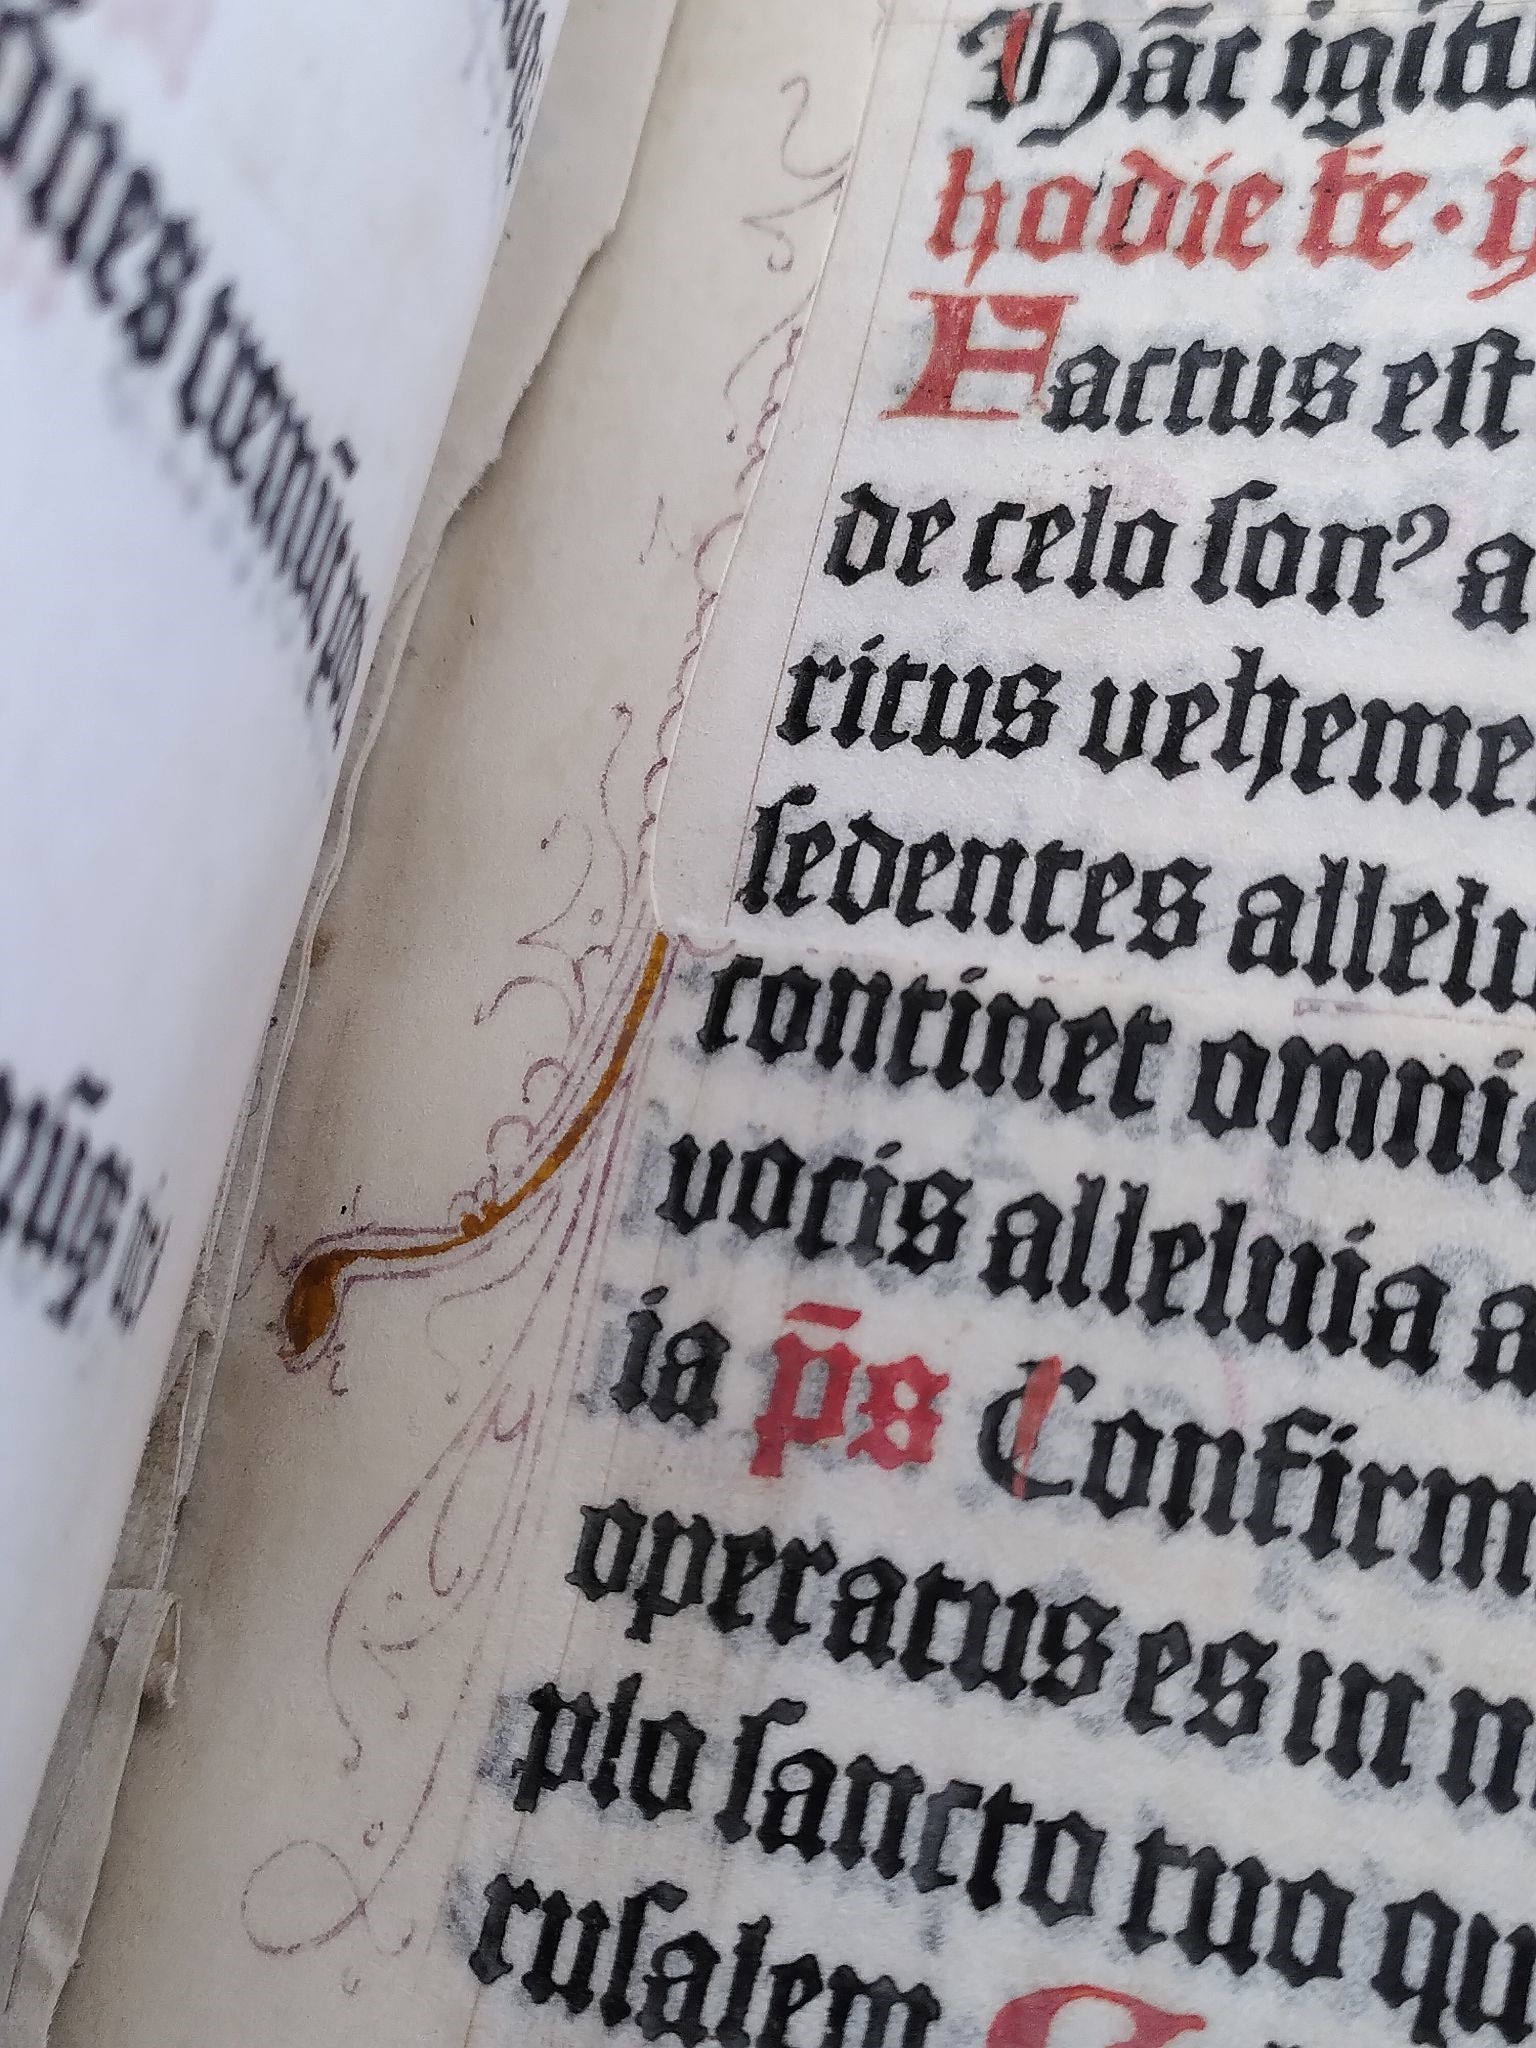 Hāc igitu
hodie fe · ij
Factus est
de celo sonꝰ a
ritus veheme
sedentes allelu
continet omni
vocis alleluia a
ia p̄s Confirm
operatus es in n
plo sancto tuo qu
rusalem